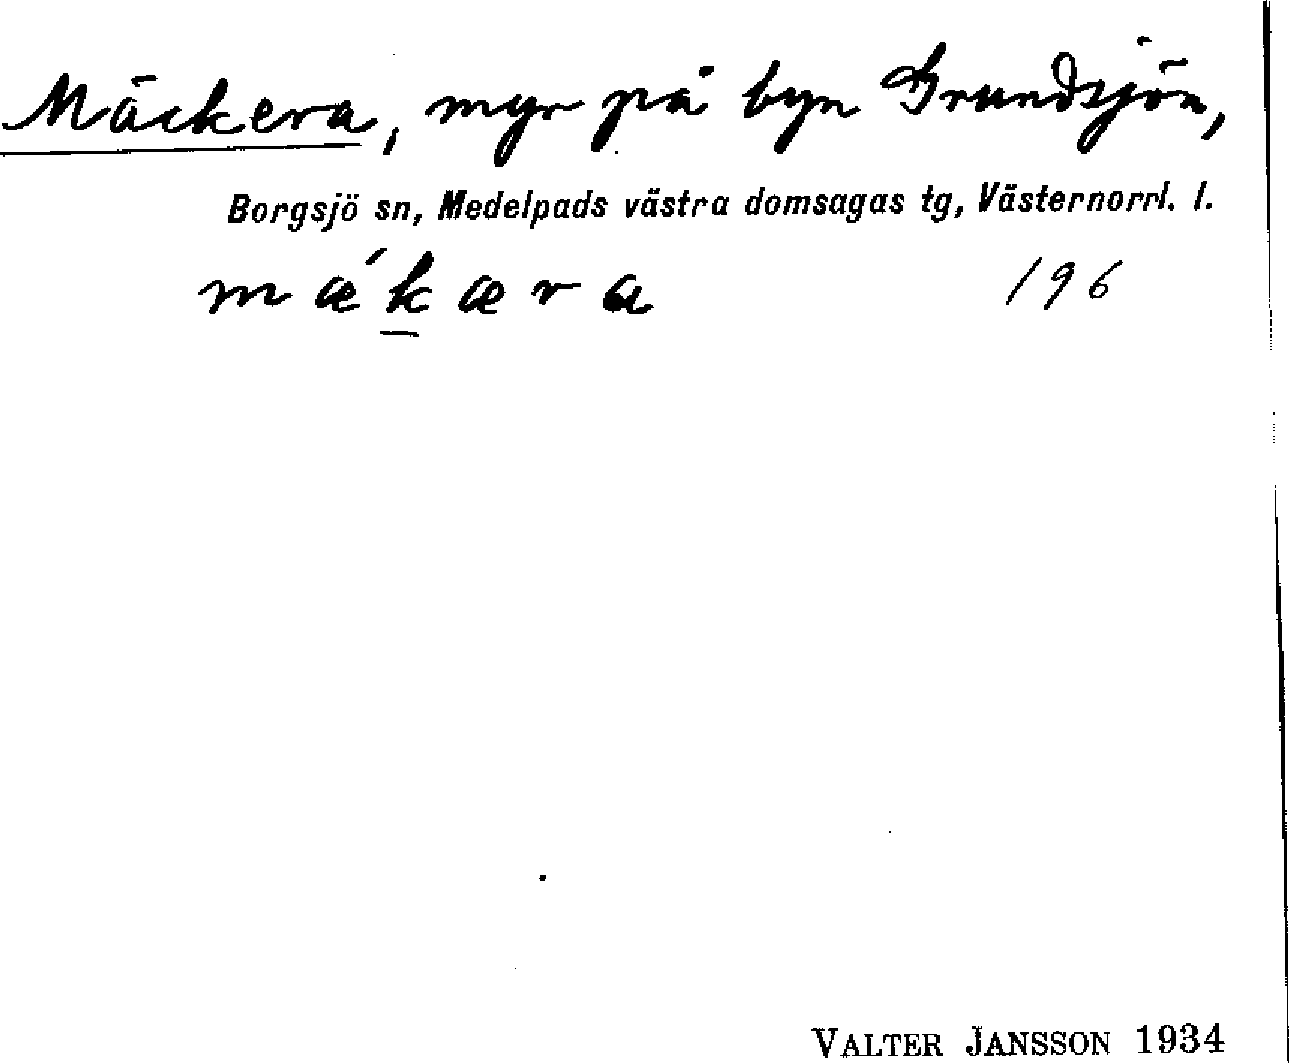 Mäckera, myr på byn Grundsjön,
Borgsjö sn, Medelpads västra domsagas tg, Västernorrl. l.
mǽkæra 196
VALTER JANSSON 1934